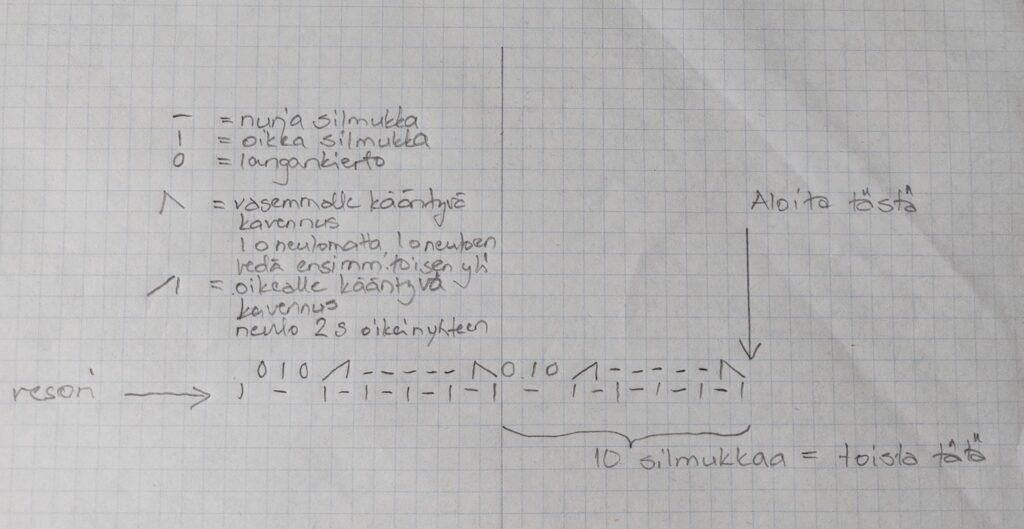 – = nurja silmukka
| = oikka silmukka
0 = langankierto
/\ = vasemmalle kääntyvä
kavennus
1 o neulomatta, 1 o neuloen
vedä ensimm. toisen yli
/| = oikealle kääntyvä
kavennus
neulo 2 s oikein yhteen
Aloita tästä
0 | 0 /| – – – – – |\ 0 | 0 /| – – – – – |\
resori → | – | – | – | – | – | – | – | – | – |
10 silmukkaa = toista tätä